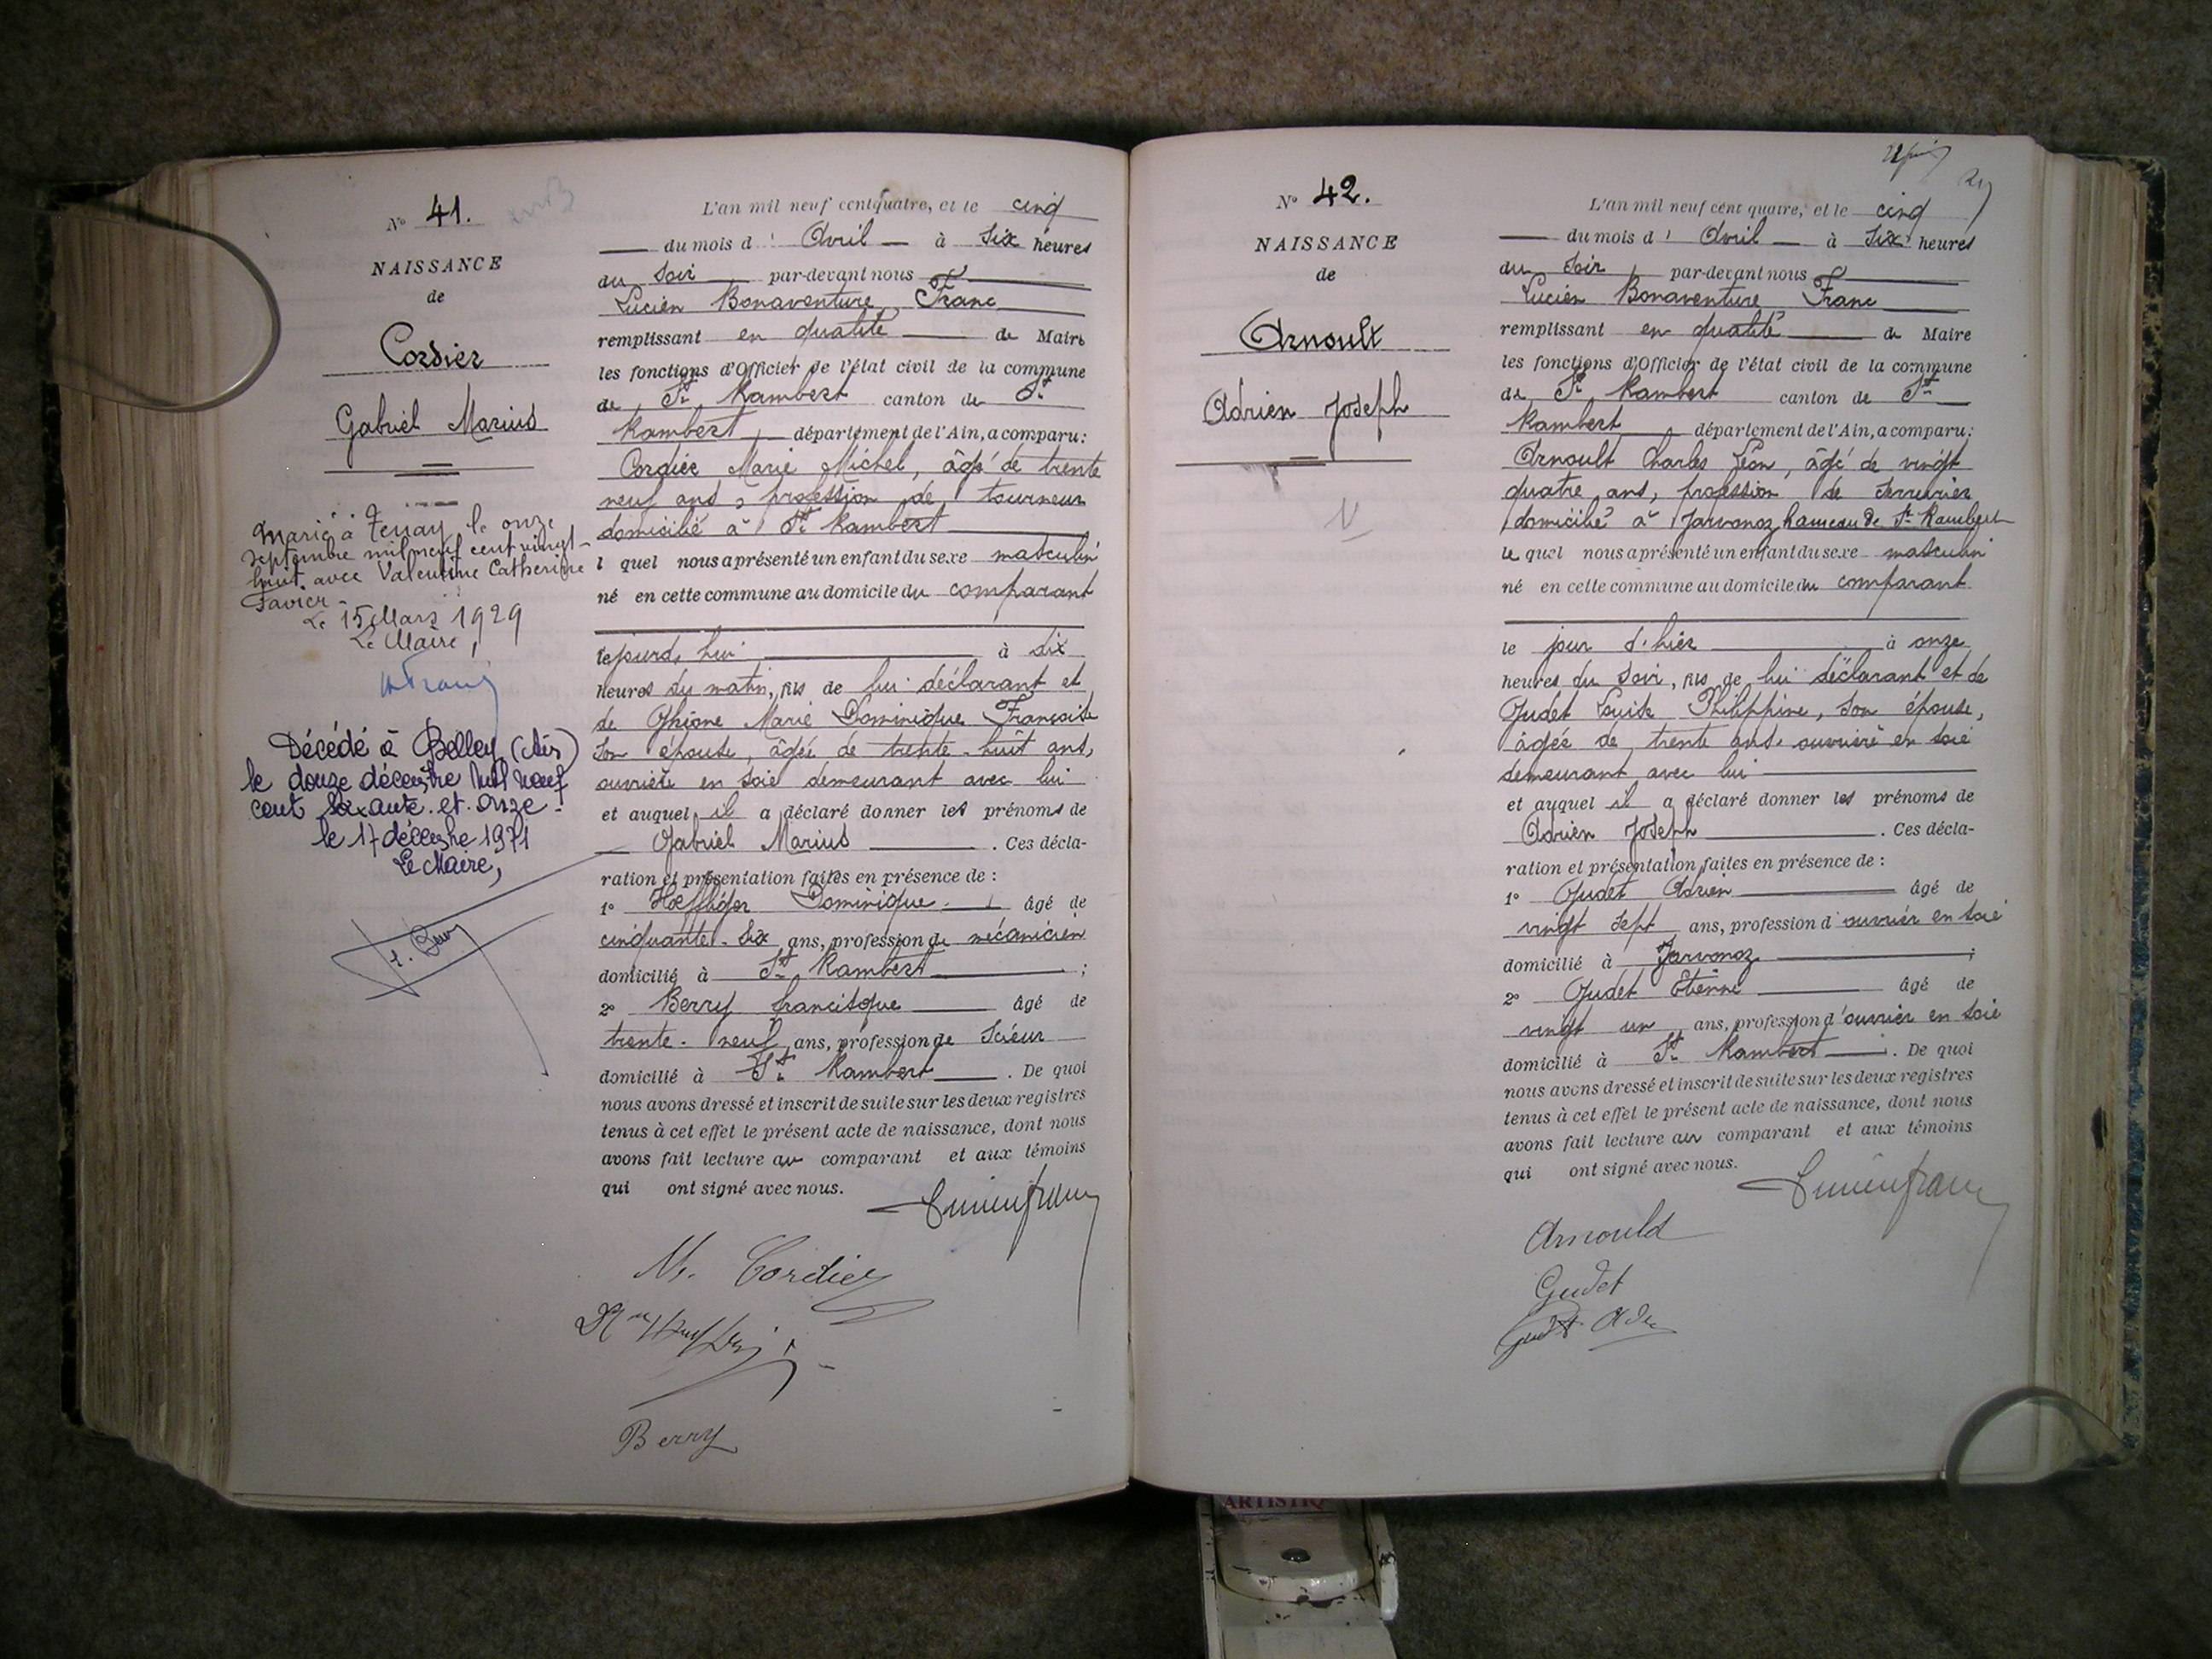 N° 41.
NAISSANCE
de
Cordier
Gabriel Marius
Marié à Tenay le onze
septembre mil neuf cent vingt-
huit avec Valentine Catherine
Favier
Le 15 Mars 1929
Le Maire,
Décédé à Belley (Ain)
le douze décembre mil neuf
cent soixante-et-onze.
le 17 décembre 1971
Le Maire,
L'an mil neuf cent quatre, et le cinq
du mois d' Avril à six heures
du soir par-devant nous
Lucien Bonaventure Franc
remplissant en qualité de Maire
les fonctions d'Officier de l'état civil de la commune
de St Rambert canton de St
Rambert département de l'Ain, a comparu :
Cordier Marie Michel, âgé de trente
neuf ans, profession de tourneur
domicilié à St Rambert
l quel nous a présenté un enfant du sexe masculin
né en cette commune au domicile du comparant
lejourd'hui à dix
heures du matin, fils de lui déclarant et
de Ghione Marie Dominique Françoise
son épouse, âgée de trente-huit ans,
ouvrière en soie demeurant avec lui
et auquel il a déclaré donner les prénoms de
Gabriel Marius . Ces décla-
ration et présentation faites en présence de :
1° Hoeffliger Dominique âgé de
cinquante-six ans, profession de mécanicien
domicilié à St Rambert ;
2° Berry francisque âgé de
trente-neuf ans, profession de scieur
domicilié à St Rambert . De quoi
nous avons dressé et inscrit de suite sur les deux registres
tenus à cet effet le présent acte de naissance, dont nous
avons fait lecture au comparant et aux témoins
qui ont signé avec nous.
Lucien franc
M. Cordier
Berry
N° 42.
NAISSANCE
de
Arnoult
Adrien Joseph
L'an mil neuf cent quatre, et le cinq
du mois d' Avril à six heures
du soir par-devant nous
Lucien Bonaventure Franc
remplissant en qualité de Maire
les fonctions d'Officier de l'état civil de la commune
de St Rambert canton de St
Rambert département de l'Ain, a comparu :
Arnoult Charles Léon, âgé de vingt
quatre ans, profession de serrurier
domicilié à Javonoz hameau de St Rambert
le quel nous a présenté un enfant du sexe masculin
né en cette commune au domicile du comparant
le jour d'hier à onze
heures du soir, fils de lui déclarant et de
Gudet Louise Philippine, son épouse,
âgée de trente ans, ouvrière en soie
demeurant avec lui
et auquel il a déclaré donner les prénoms de
Adrien Joseph . Ces décla-
ration et présentation faites en présence de :
1° Gudet Adrien âgé de
vingt sept ans, profession d'ouvrier en soie
domicilié à Javonoz ;
2° Gudet Etienne âgé de
vingt un ans, profession d'ouvrier en soie
domicilié à St Rambert . De quoi
nous avons dressé et inscrit de suite sur les deux registres
tenus à cet effet le présent acte de naissance, dont nous
avons fait lecture au comparant et aux témoins
qui ont signé avec nous.
Lucien franc
Arnould
Gudet
ARTISTIQ